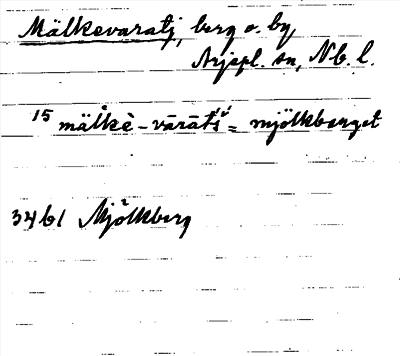 Mälkevaratj, berg o. by,
Arjepl. sn, Nb. l.
15 mälkè-vāràtś = mjölkberget
34b1 Mjölkberg